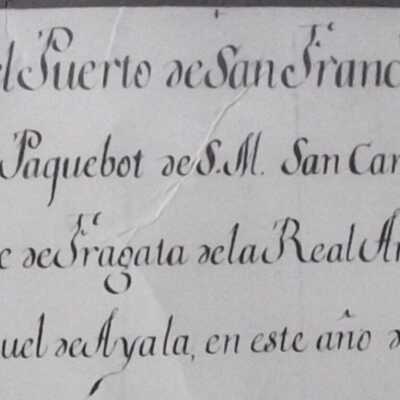 el Puerto de San Franc
Paquebot de S.M. San Car
te de Fragata de la Real Ar
uel de Ayala, en este año d